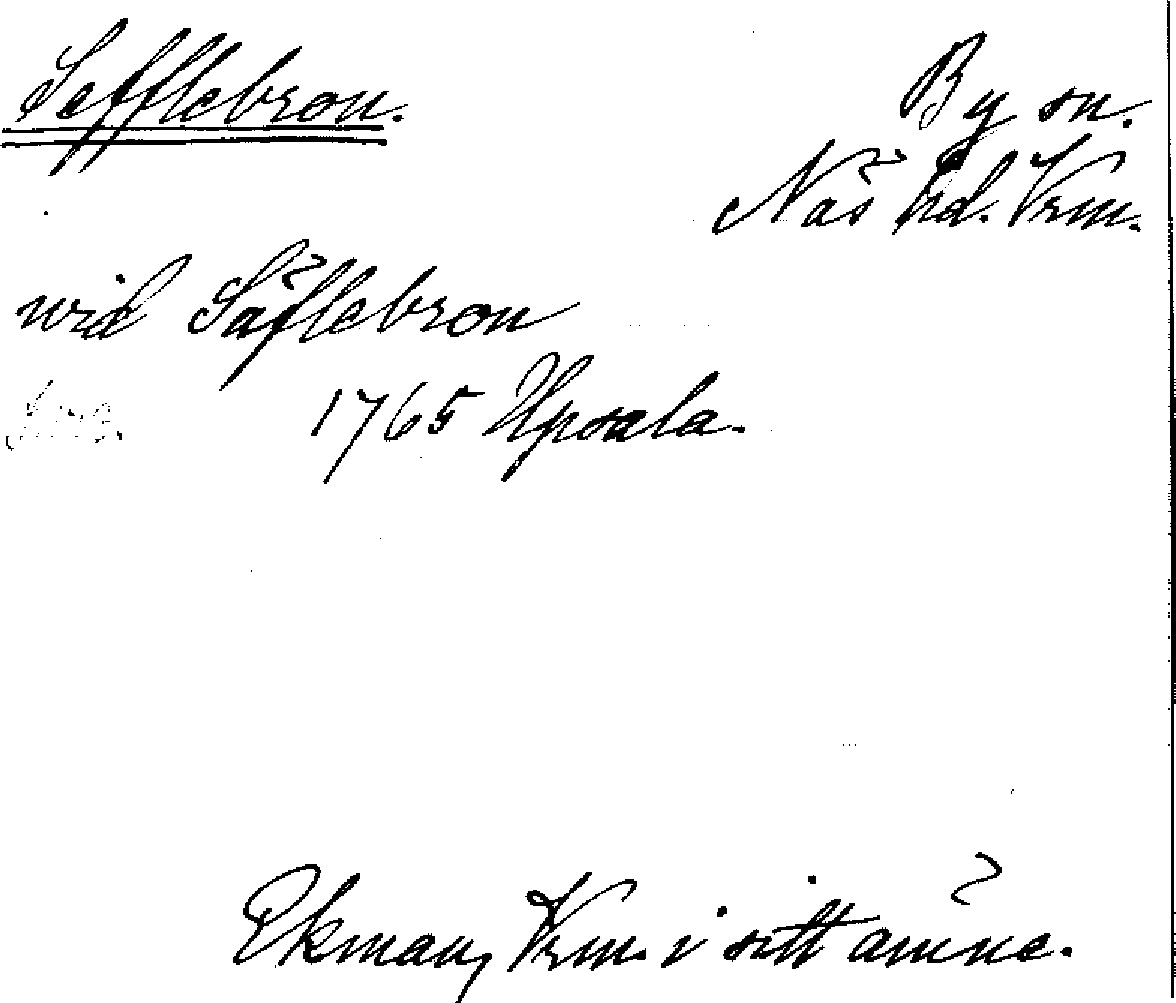 Sefflebron.
By sn.
Näs hd. Vrm.
wid Säflebron
1765 Upsala.
Ekman, Vrm. i sitt ämne.